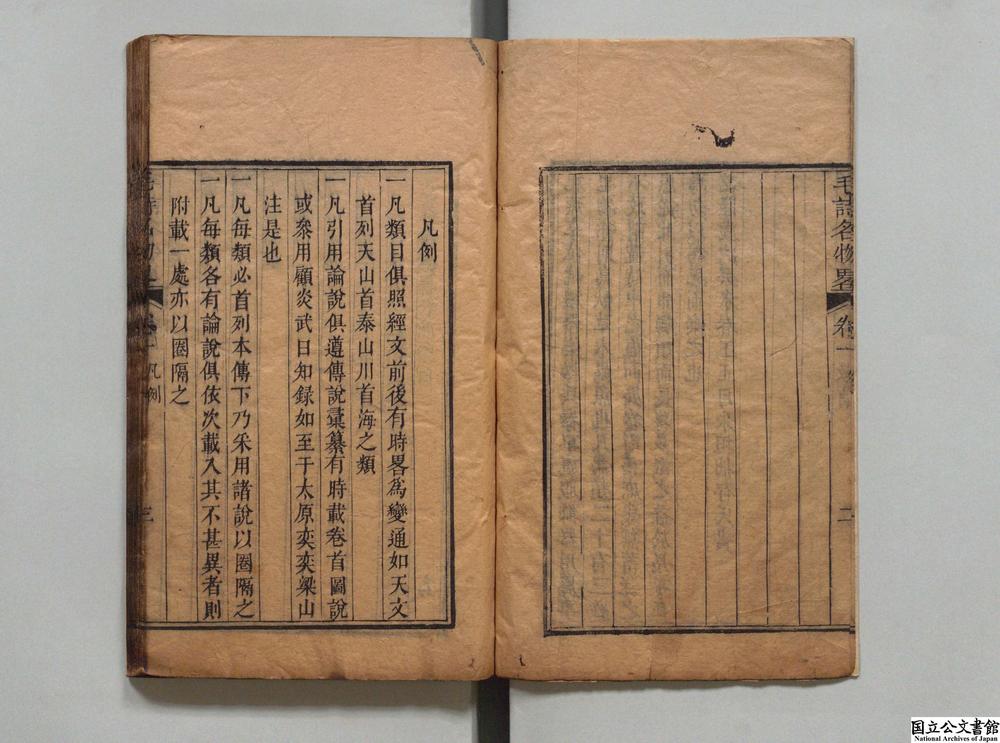 毛詩名物畧
卷一
二
凡例
一凡類目俱照經文前後有時畧爲變通如天文
首列天山首泰山川首海之類
一凡引用論說俱遵傳說彚纂有時載卷首圖說
或叅用顧炎武日知録如至于太原奕奕梁山
注是也
一凡每類必首列本傳下乃采用諸說以圏隔之
一凡每類各有論說俱依次載入其不甚異者則
附載一處亦以圏隔之
凡例
三
国立公文書館
National Archives of Japan